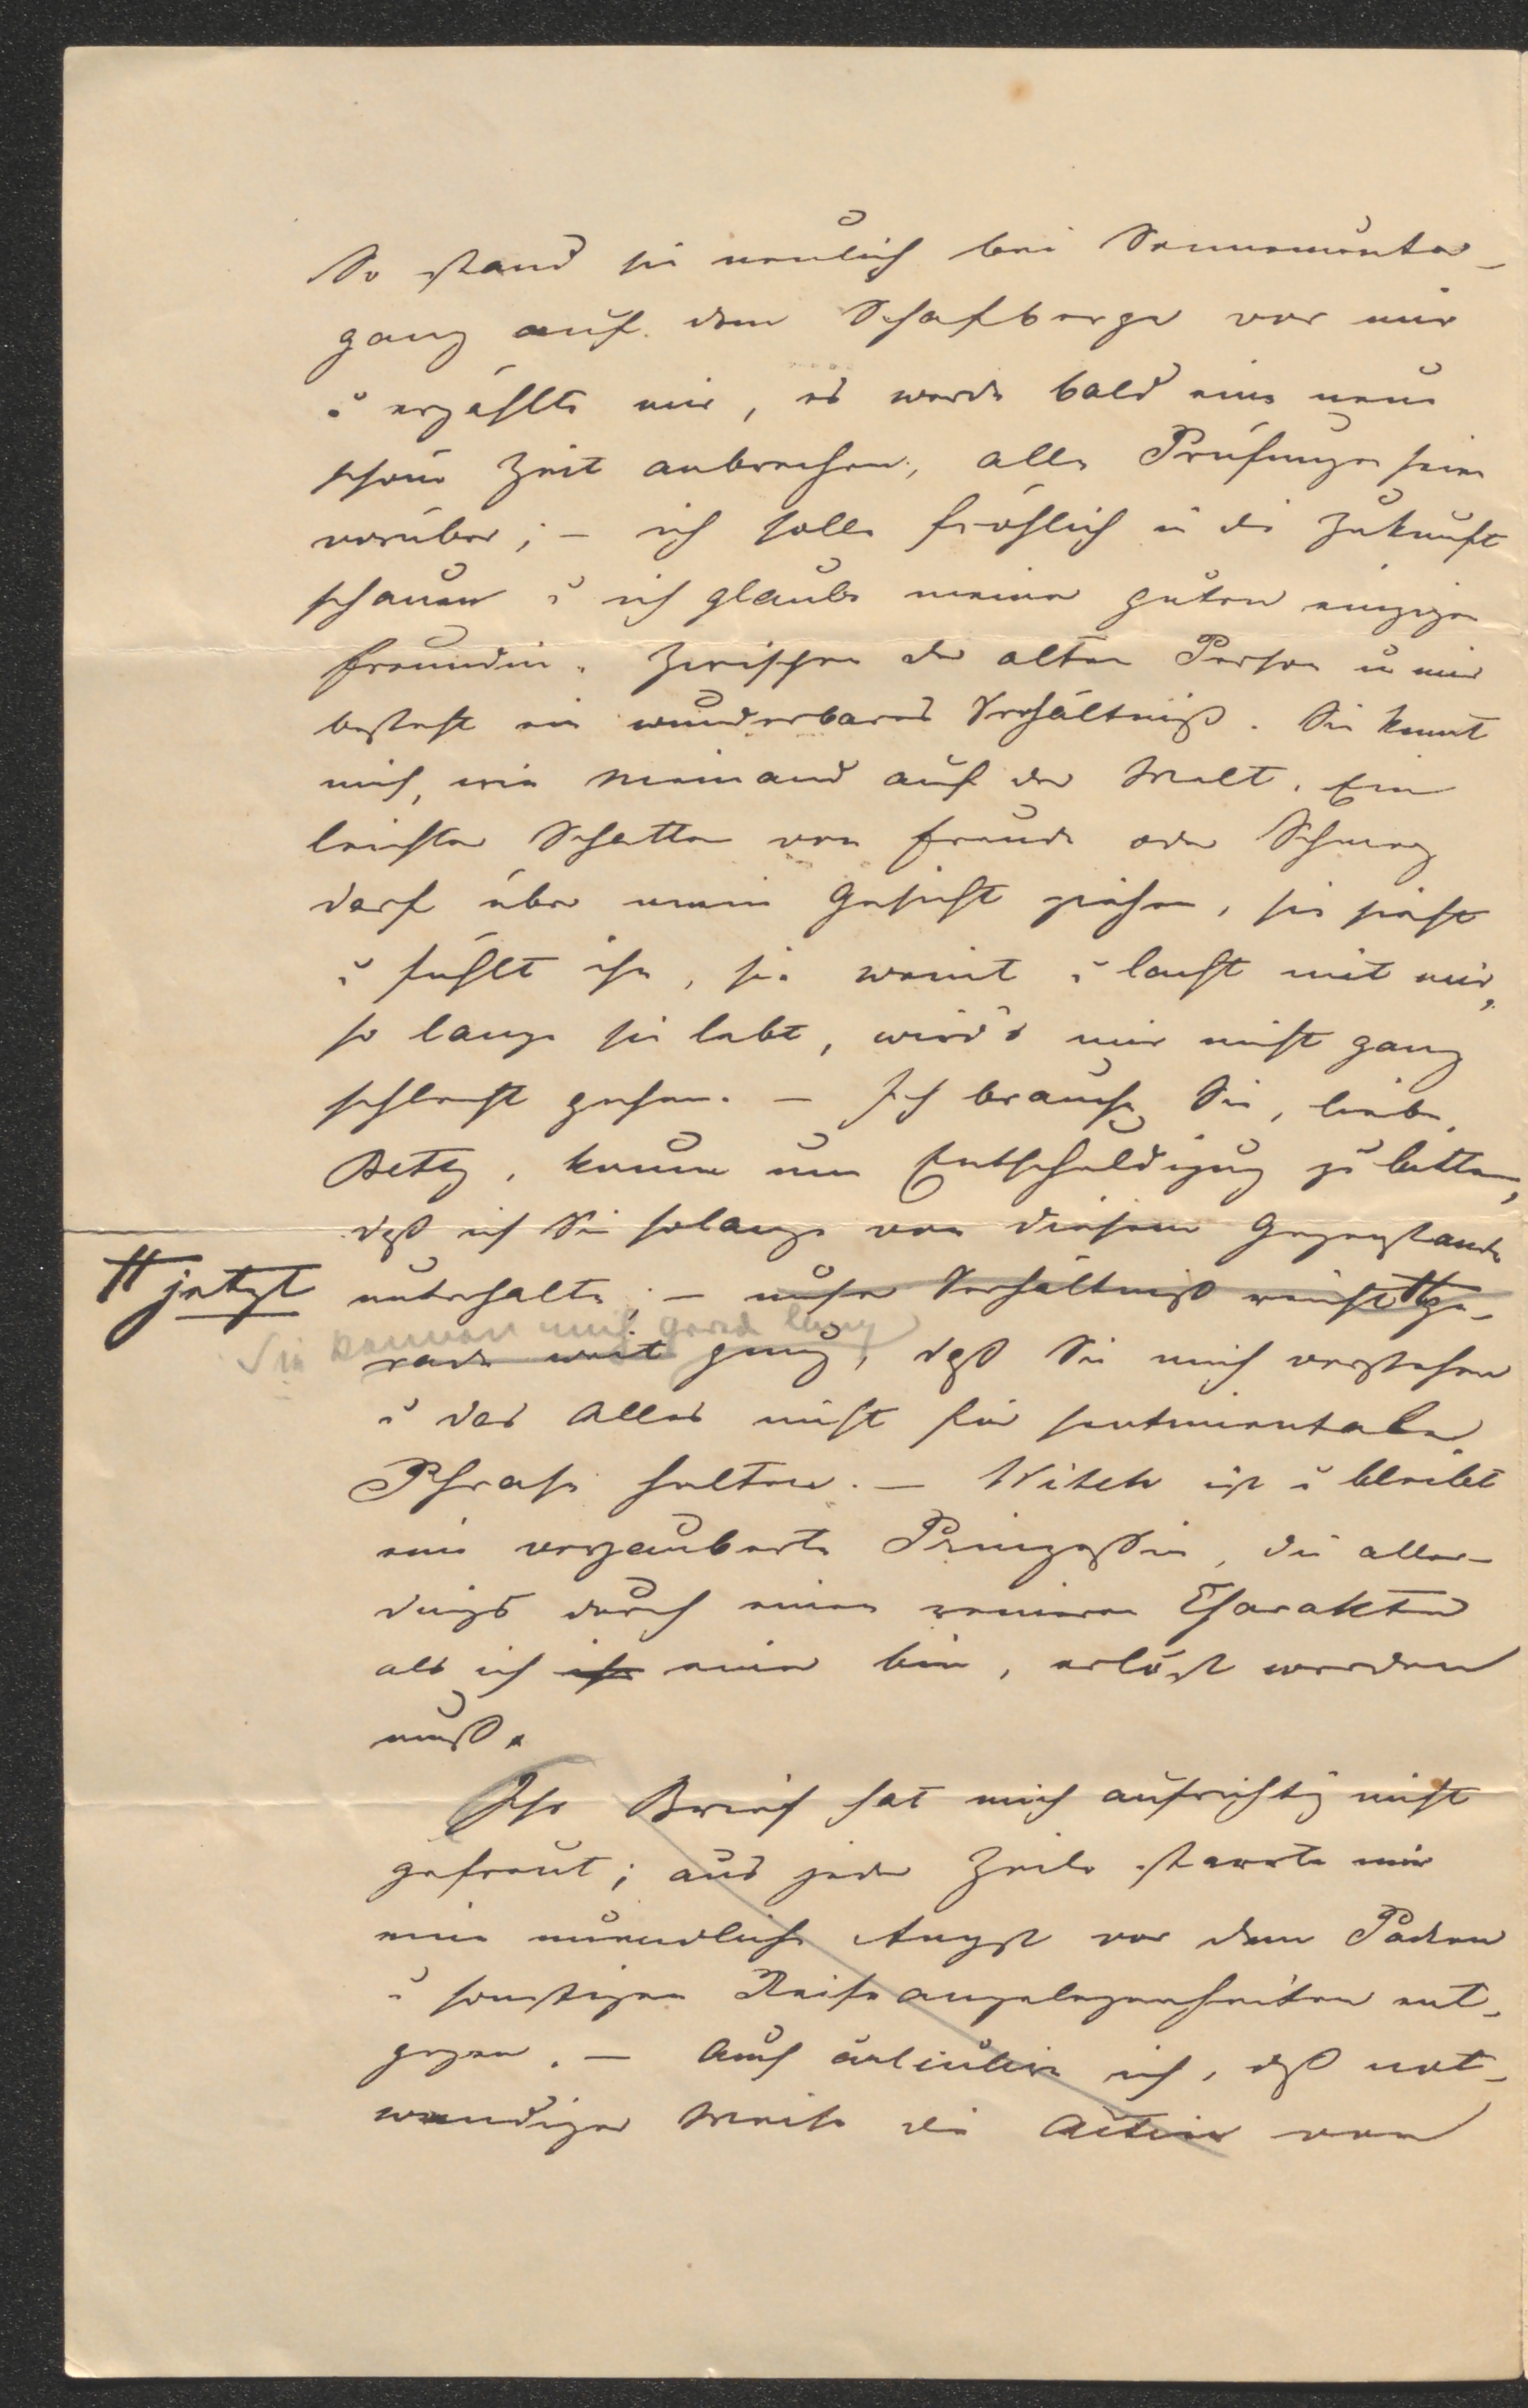 So stand sie neulich bei Sonnenunter-
gang auf dem Schafberge vor mir
u erzählte mir, es werde bald eine neue
schöne Zeit anbrechen, alle Prüfungen seien
vorüber; – ich solle fröhlich in die Zukunft
schauen u ich glaube meiner guten einzigen
Freundin. Zwischen der alten Person u mir
besteht ein wunderbares Verhältniß. Sie kennt
mich, wie niemand auf der Welt. Ein
leichter Schatten von Freude oder Schmerz
darf über mein Gesicht ziehen, sie sieht
u fühlt ihn, sie weint u lacht mit mir,
so lange sie lebt, wird's mir nicht ganz
schlecht gehen. – Ich brauche Sie, liebe
Betty, kaum um Entschuldigung zu bitten,
daß ich Sie solange von diesem Gegenstande
unterhalte; – unser Verhältniß reicht # ge-
# jetzt
Sie kennen mich gerade lang
rade weit genug, daß Sie mich verstehen
u das Alles nicht für sentimentale
Phrase halten. – Witek ist u bleibt
eine verzauberte Prinzessin, die aller-
dings durch einen reineren Charakter
als ich einer bin, erlöst werden
muß.
Ihr Brief hat mich aufrichtig nicht
gefreut; aus jeder Zeile starrte mir
eine unendliche Angst vor dem Packen
u sonstigen Reiseangelegenheiten ent-
gegen. – Auch ich, daß not-
wendiger Weise die von